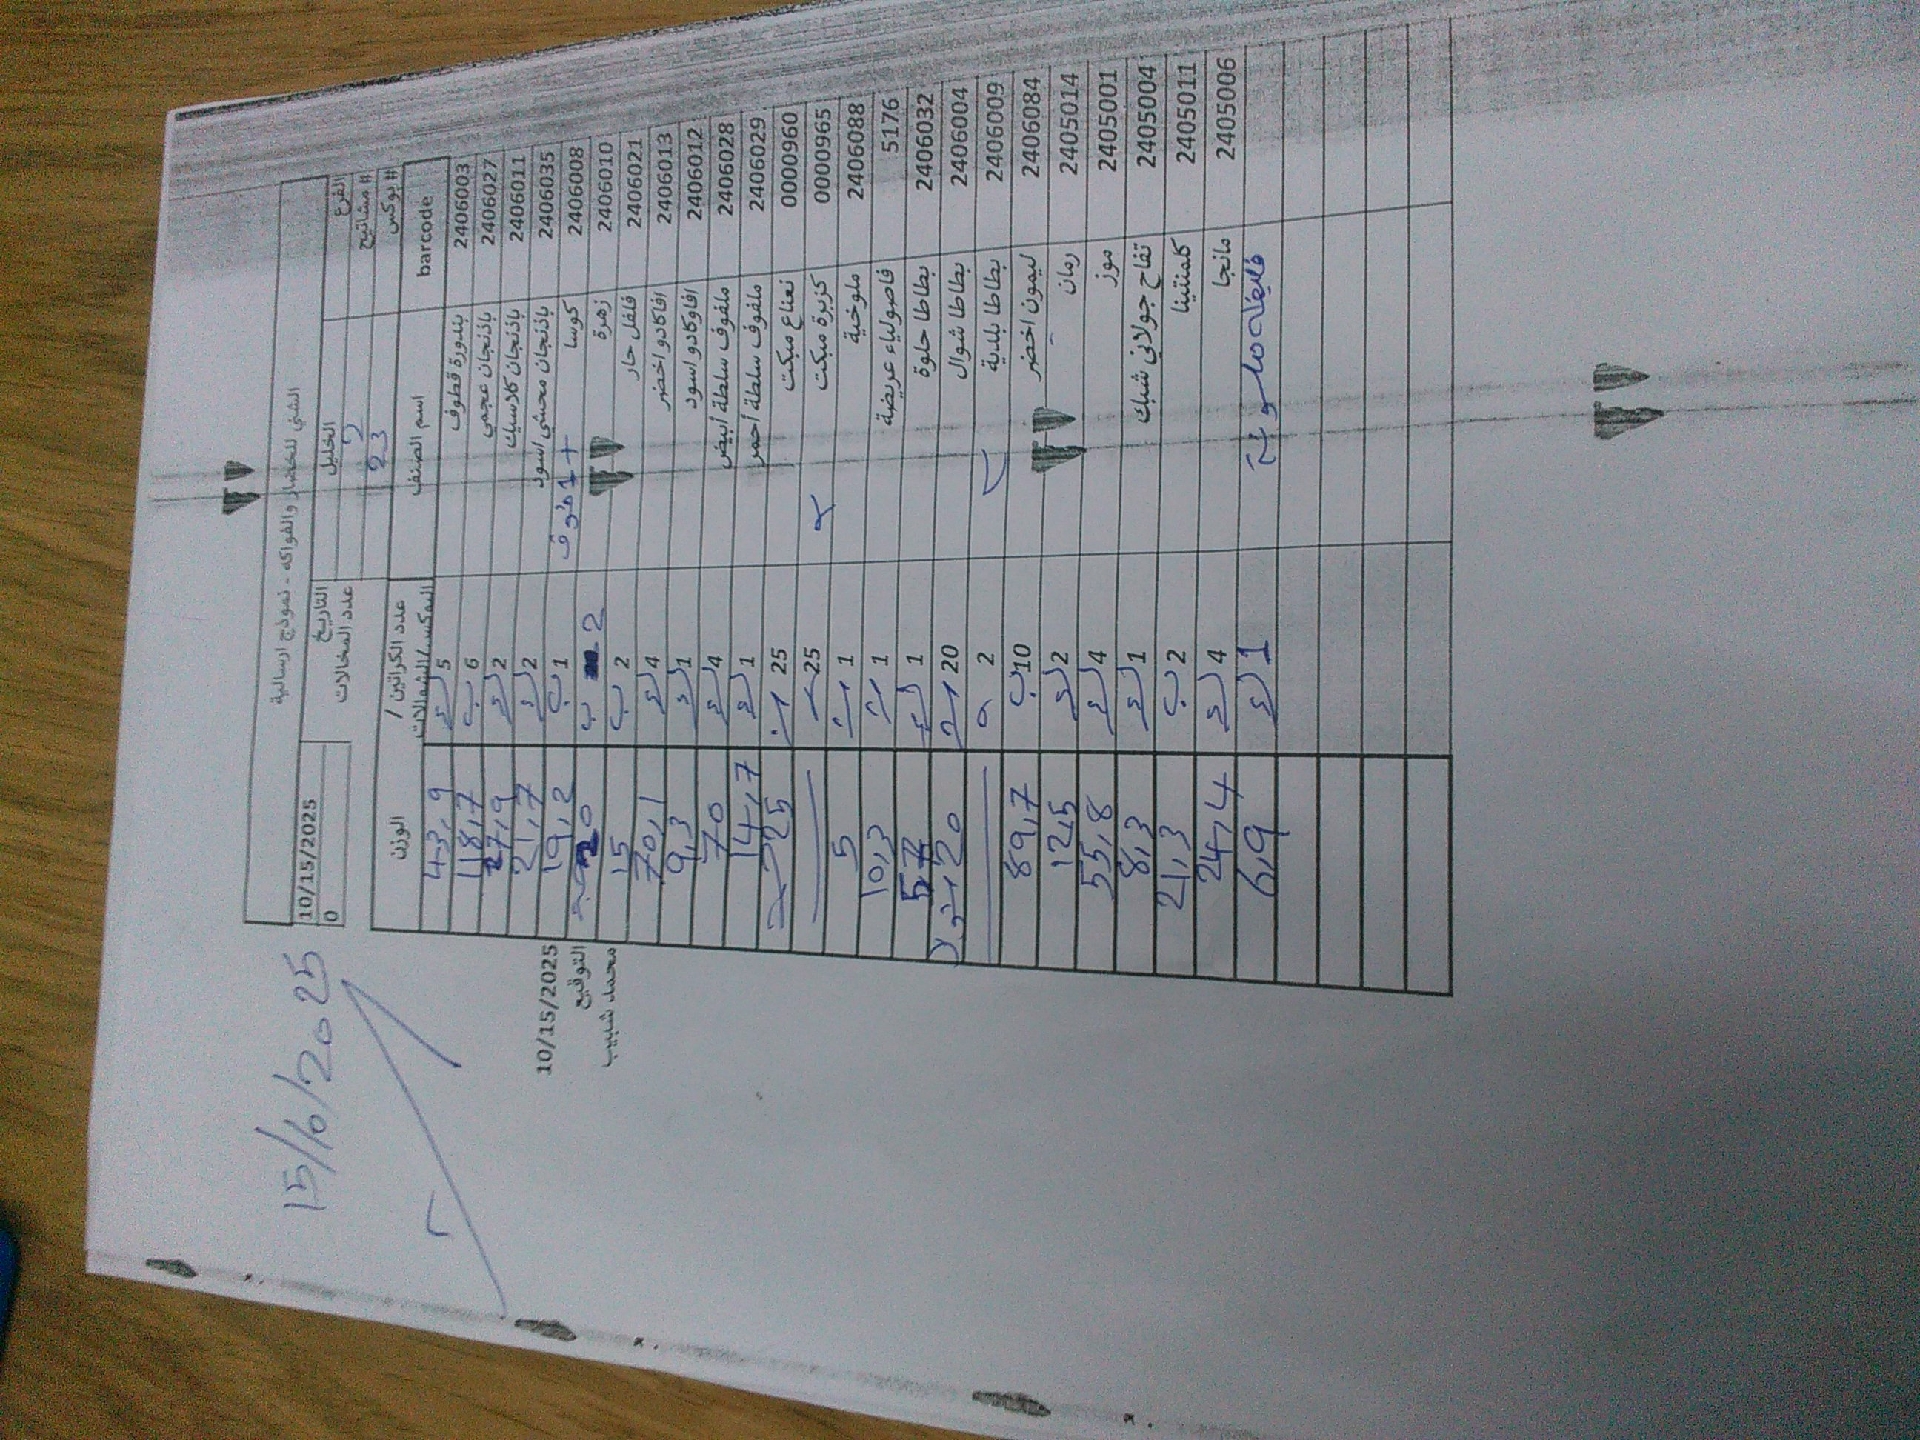 15/10/2025
الشني للخضار والفواكه - نموذج ارسالية
الفرع الخليل التاريخ 10/15/2025
# مشاتيح 2 عدد المخالات 0
# بوكس 23
barcode اسم الصنف عدد الكراتين / البوكس/الشوالات الوزن
2406003 بندورة قطوف 5 43,9
2406027 باذنجان عجمي ب 6 118,7
2406011 باذنجان كلاسيك 2 27,9
2406035 باذنجان محشي اسود 2 21,7
2406008 كوسا ب 1 19,2
2406010 زهرة ب 2 20
2406021 فلفل حار ب 2 15
2406013 افاكادو اخضر 4 70,1
2406012 افاوكادو اسود 1 9,3
2406028 ملفوف سلطة ابيض 4 70
2406029 ملفوف سلطة احمر 1 14,7
0000960 نعناع مبكت 25 25
0000965 كزبرة مبكت 25
2406088 ملوخية 1 5
5176 فاصولياء عريضة 1 10,3
2406032 بطاطا حلوة 1 5,7
2406004 بطاطا شوال 20 20
2406009 بطاطا بلدية 2
2406084 ليمون اخضر ب 10 89,7
2405014 رمان 2 12,5
2405001 موز 4 55,8
2405004 تفاح جولاني شبك 1 8,3
2405011 كلمنتينا ب 2 21,3
2405006 مانجا 4 24,4
1 6,9
10/15/2025
التوقيع
محمد شبيب